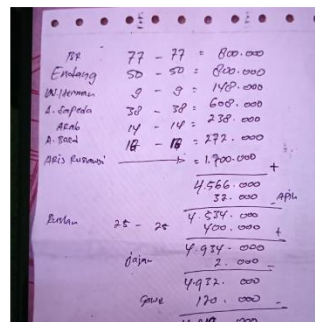 77 - 77 = 800.000
Endang 50 - 50 = 800.000
W. Herman 9 - 9 = 148.000
A. Sapeda 38 - 38 = 608.000
Arab 14 - 14 = 238.000
A. Said 16 - 16 = 272.000
Aris Kusnawi → = 1.700.000 +
4.566.000
32.000 - Apin
4.534.000
Ruslan 25 - 25 400.000 +
4.934.000
jajan 2.000 -
4.932.000
120.000 -